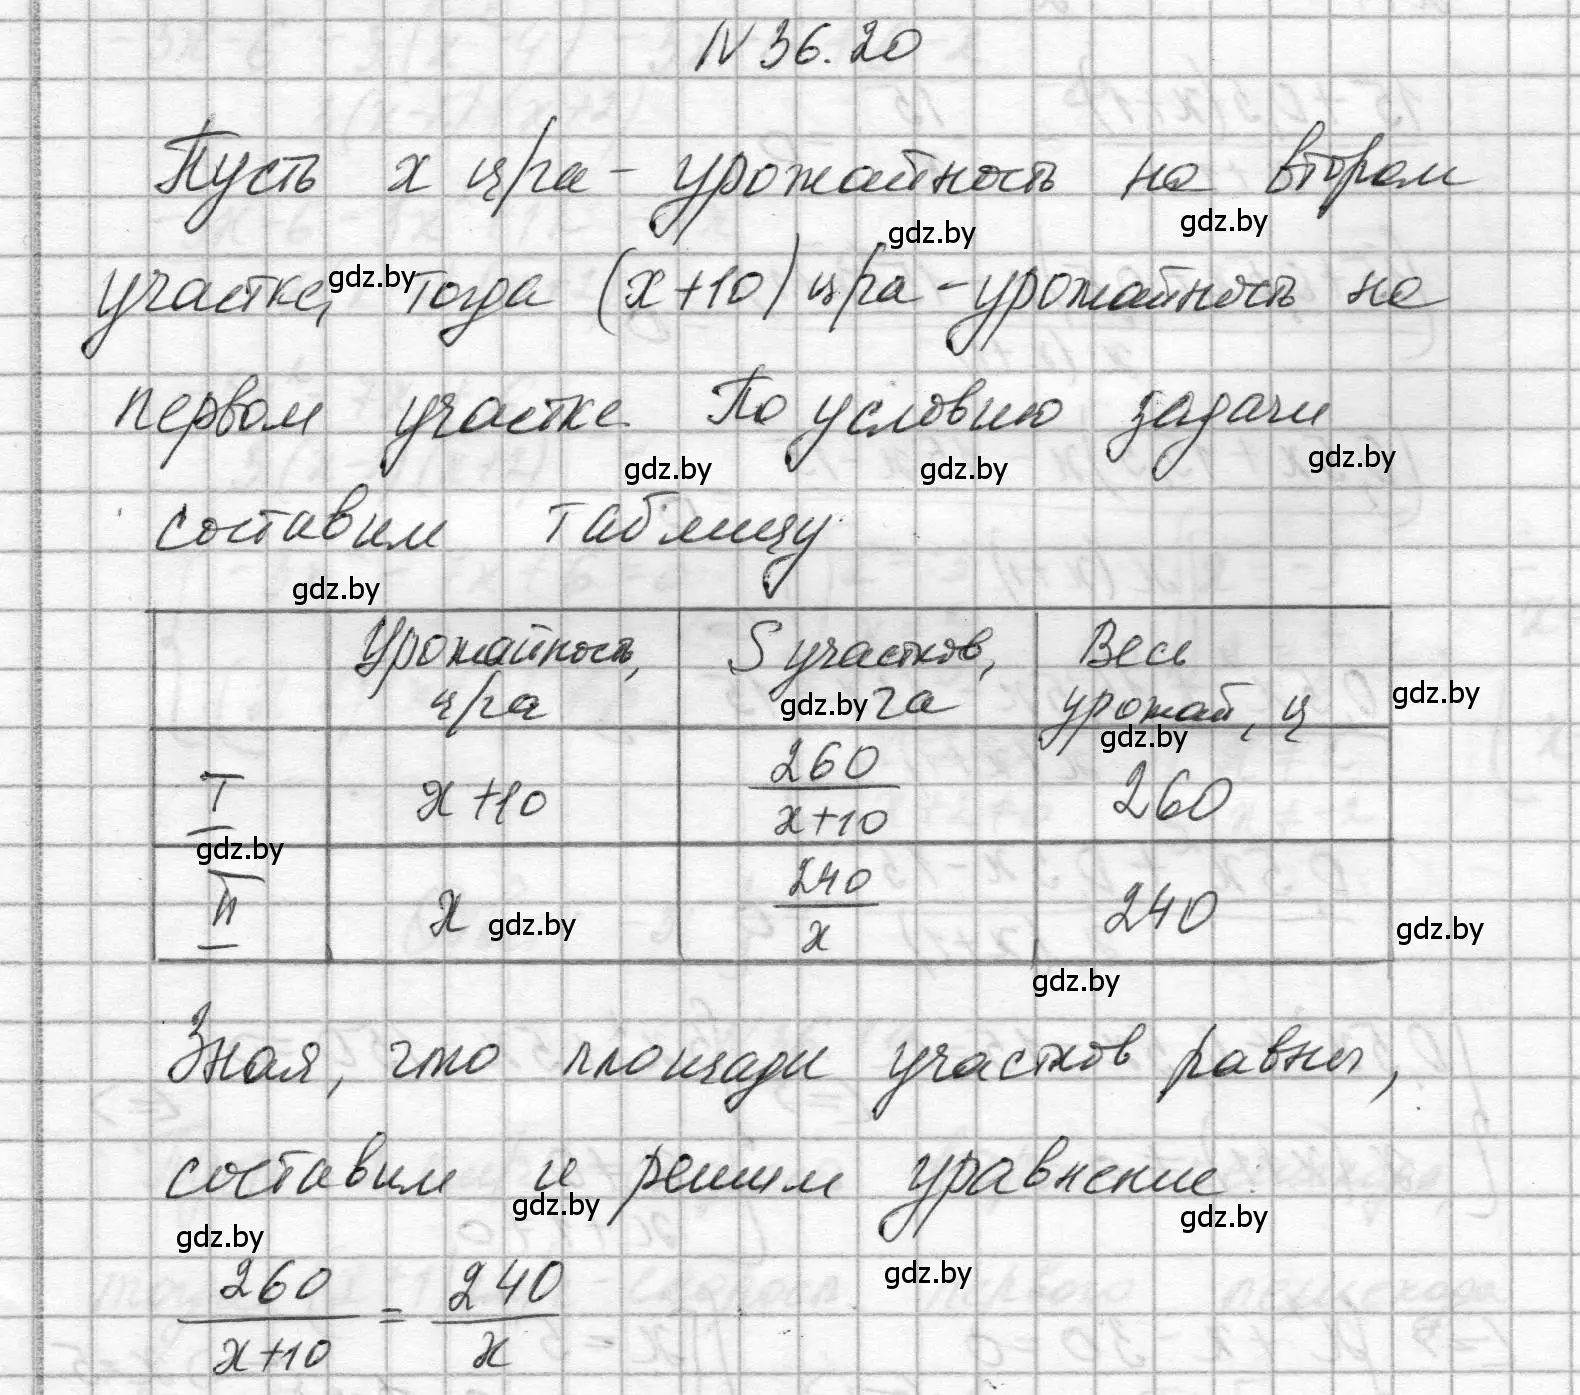 N 36.20
Пусть x ц/га - урожайность на втором
gdz.by gdz.by
участке, gdz.by тогда (x+10) ц/га - урожайность на
первом участке. По условию задачи
gdz.by gdz.by gdz.by
составим таблицу
gdz.by
Урожайность, ц/га
S участков, га
Весь урожай, ц
gdz.by gdz.by gdz.by
I x+10 260/(x+10) 260
gdz.by
II x 240/x 240
gdz.by gdz.by
gdz.by
Зная, что площади участков равны,
составим и решим уравнение:
gdz.by gdz.by
gdz.by gdz.by
260/(x+10) = 240/x